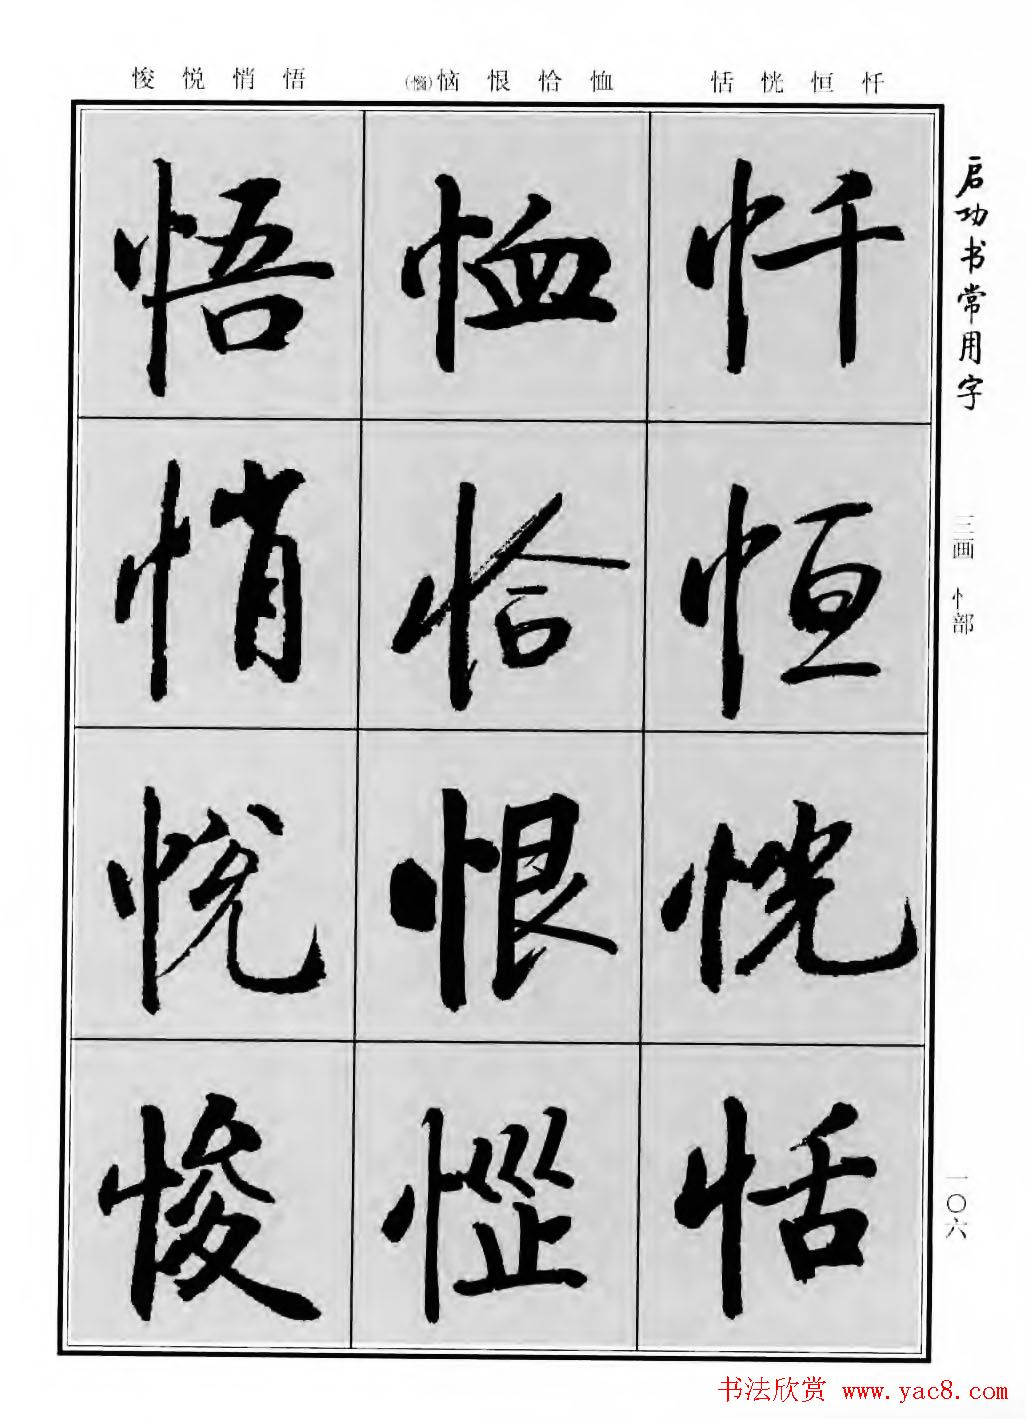 忏 恒 恍 恬
恤 恰 恨 恼(惱)
悟 悄 悦 悛
启功书常用字
三画 忄部
一〇六
忏
恒
恍
恬
恤
恰
恨
悟
悄
悦
悛
书法欣赏 www.yac8.com